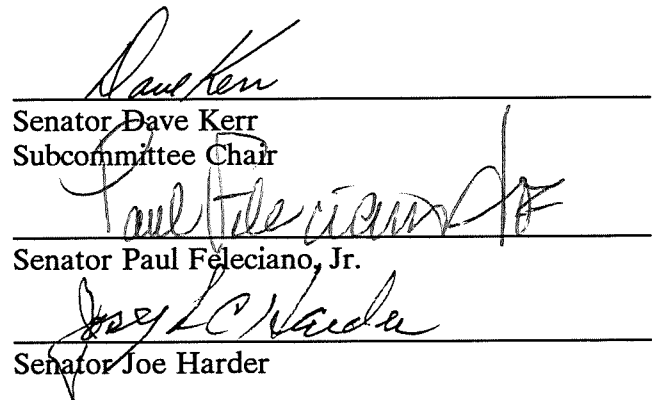 Dave Kerr
Senator Dave Kerr
Subcommittee Chair
Paul Feleciano Jr
Senator Paul Feleciano, Jr.
Joseph C Harder
Senator Joe Harder